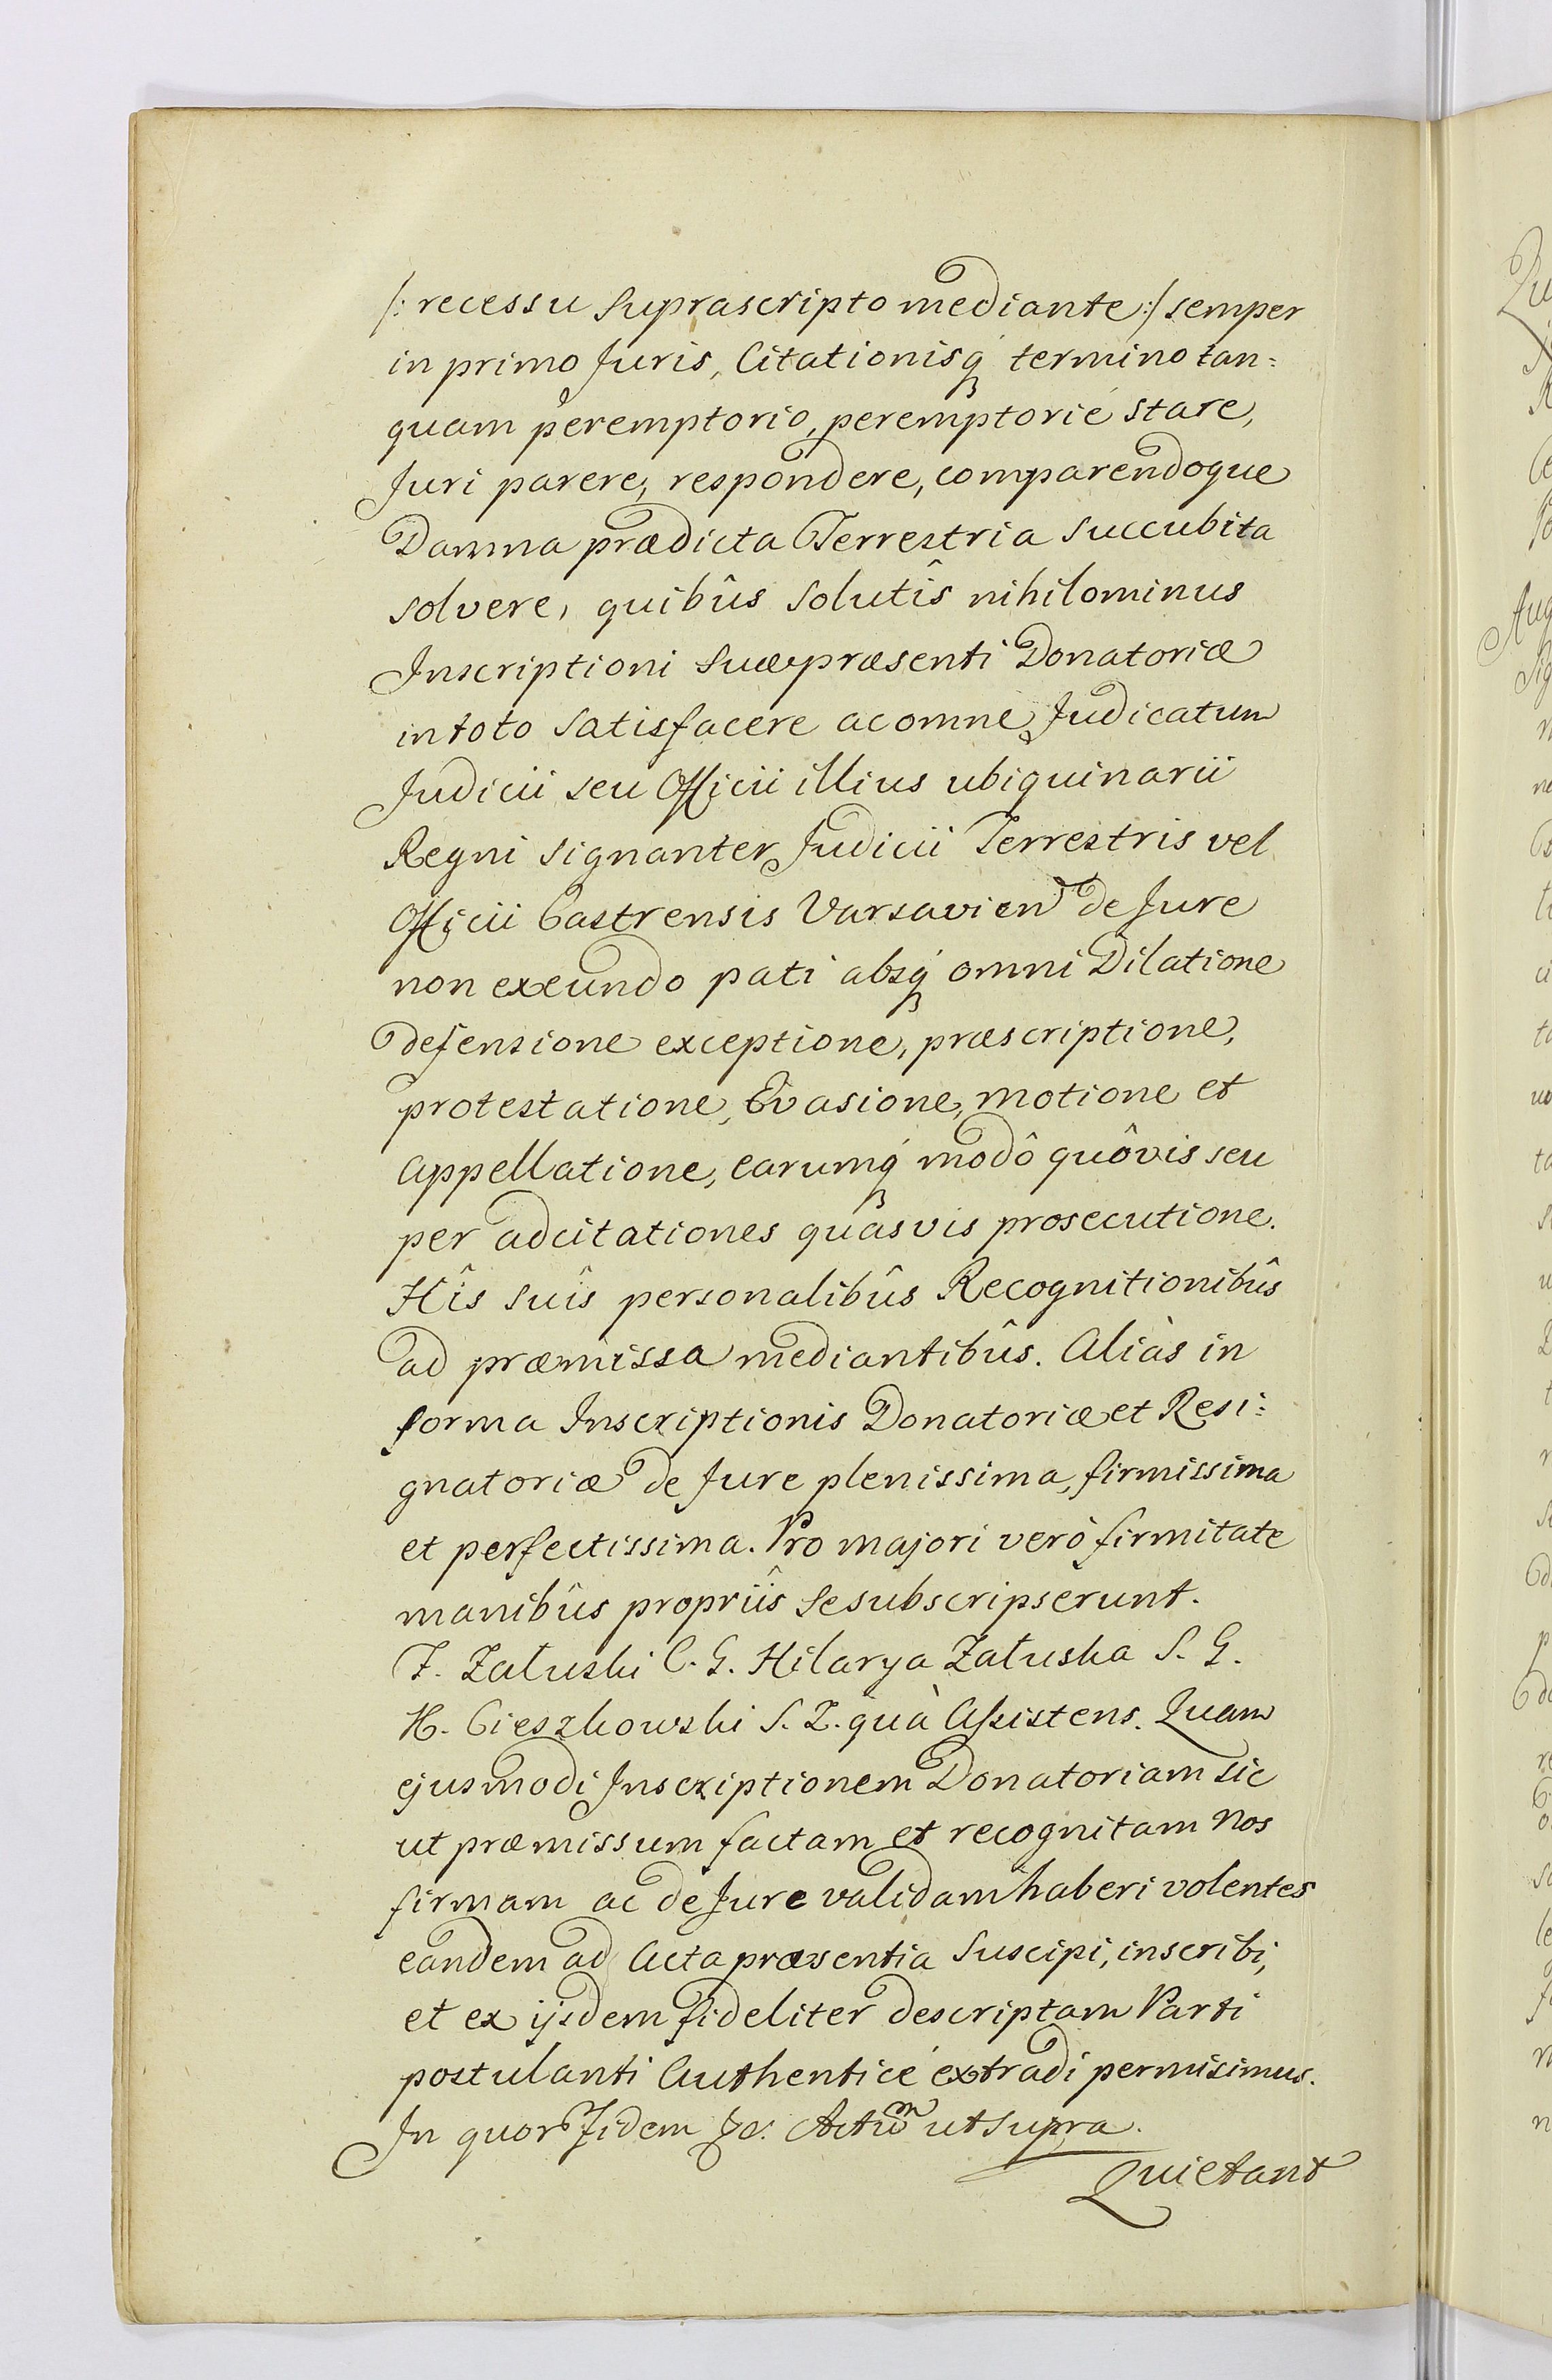 /: recessu suprascripto mediante :/ semper
in primo Juris, Citationisq́ termino tan=
quam peremptorio, peremptorié stare,
Juri parere, respondere, comparendoque
Damna prædicta Terrestria succubita
solvere, quibûs solutîs nihilominus
Inscriptioni suæ præsenti Donatoriæ
in toto satisfacere ac omne Judicatum
Judicii seu Officii illius ubiquinarii
Regni signanter Judicii Terrestris vel
Officii Castrensis Varsavien de Jure
non exeundo pati absq́ omni Dilatione
defensione exceptione, præscriptione,
protestatione, Evasione, motione et
Appellatione, earumq́ modô quôvis seu
per adcitationes quasvis prosecutione.
Hîs suîs personalibûs Recognitionibûs
ad præmissa mediantibûs. Aliàs in
forma Inscriptionis Donatoriæ et Resi=
gnatoriæ de Jure plenissima, firmissima
et perfectissima. Pro majori verò firmitate
manibûs propriîs se subscripserunt.
F. Załuski C. G. Hilarya Załuska S. G.
H. Cieszkowski S. Z. quà Assistens. Quam
ejusmodi Inscriptionem Donatoriam sic
ut præmissum factam et recognitam Nos
firmam ac de Jure validam haberi volentes
eandem ad Acta præsentia suscipi, inscribi,
et ex ijsdem fideliter descriptam Parti
postulanti Authenticé extradi permisimus.
In quor Fidem &c. Actum ut supra.
Quietant